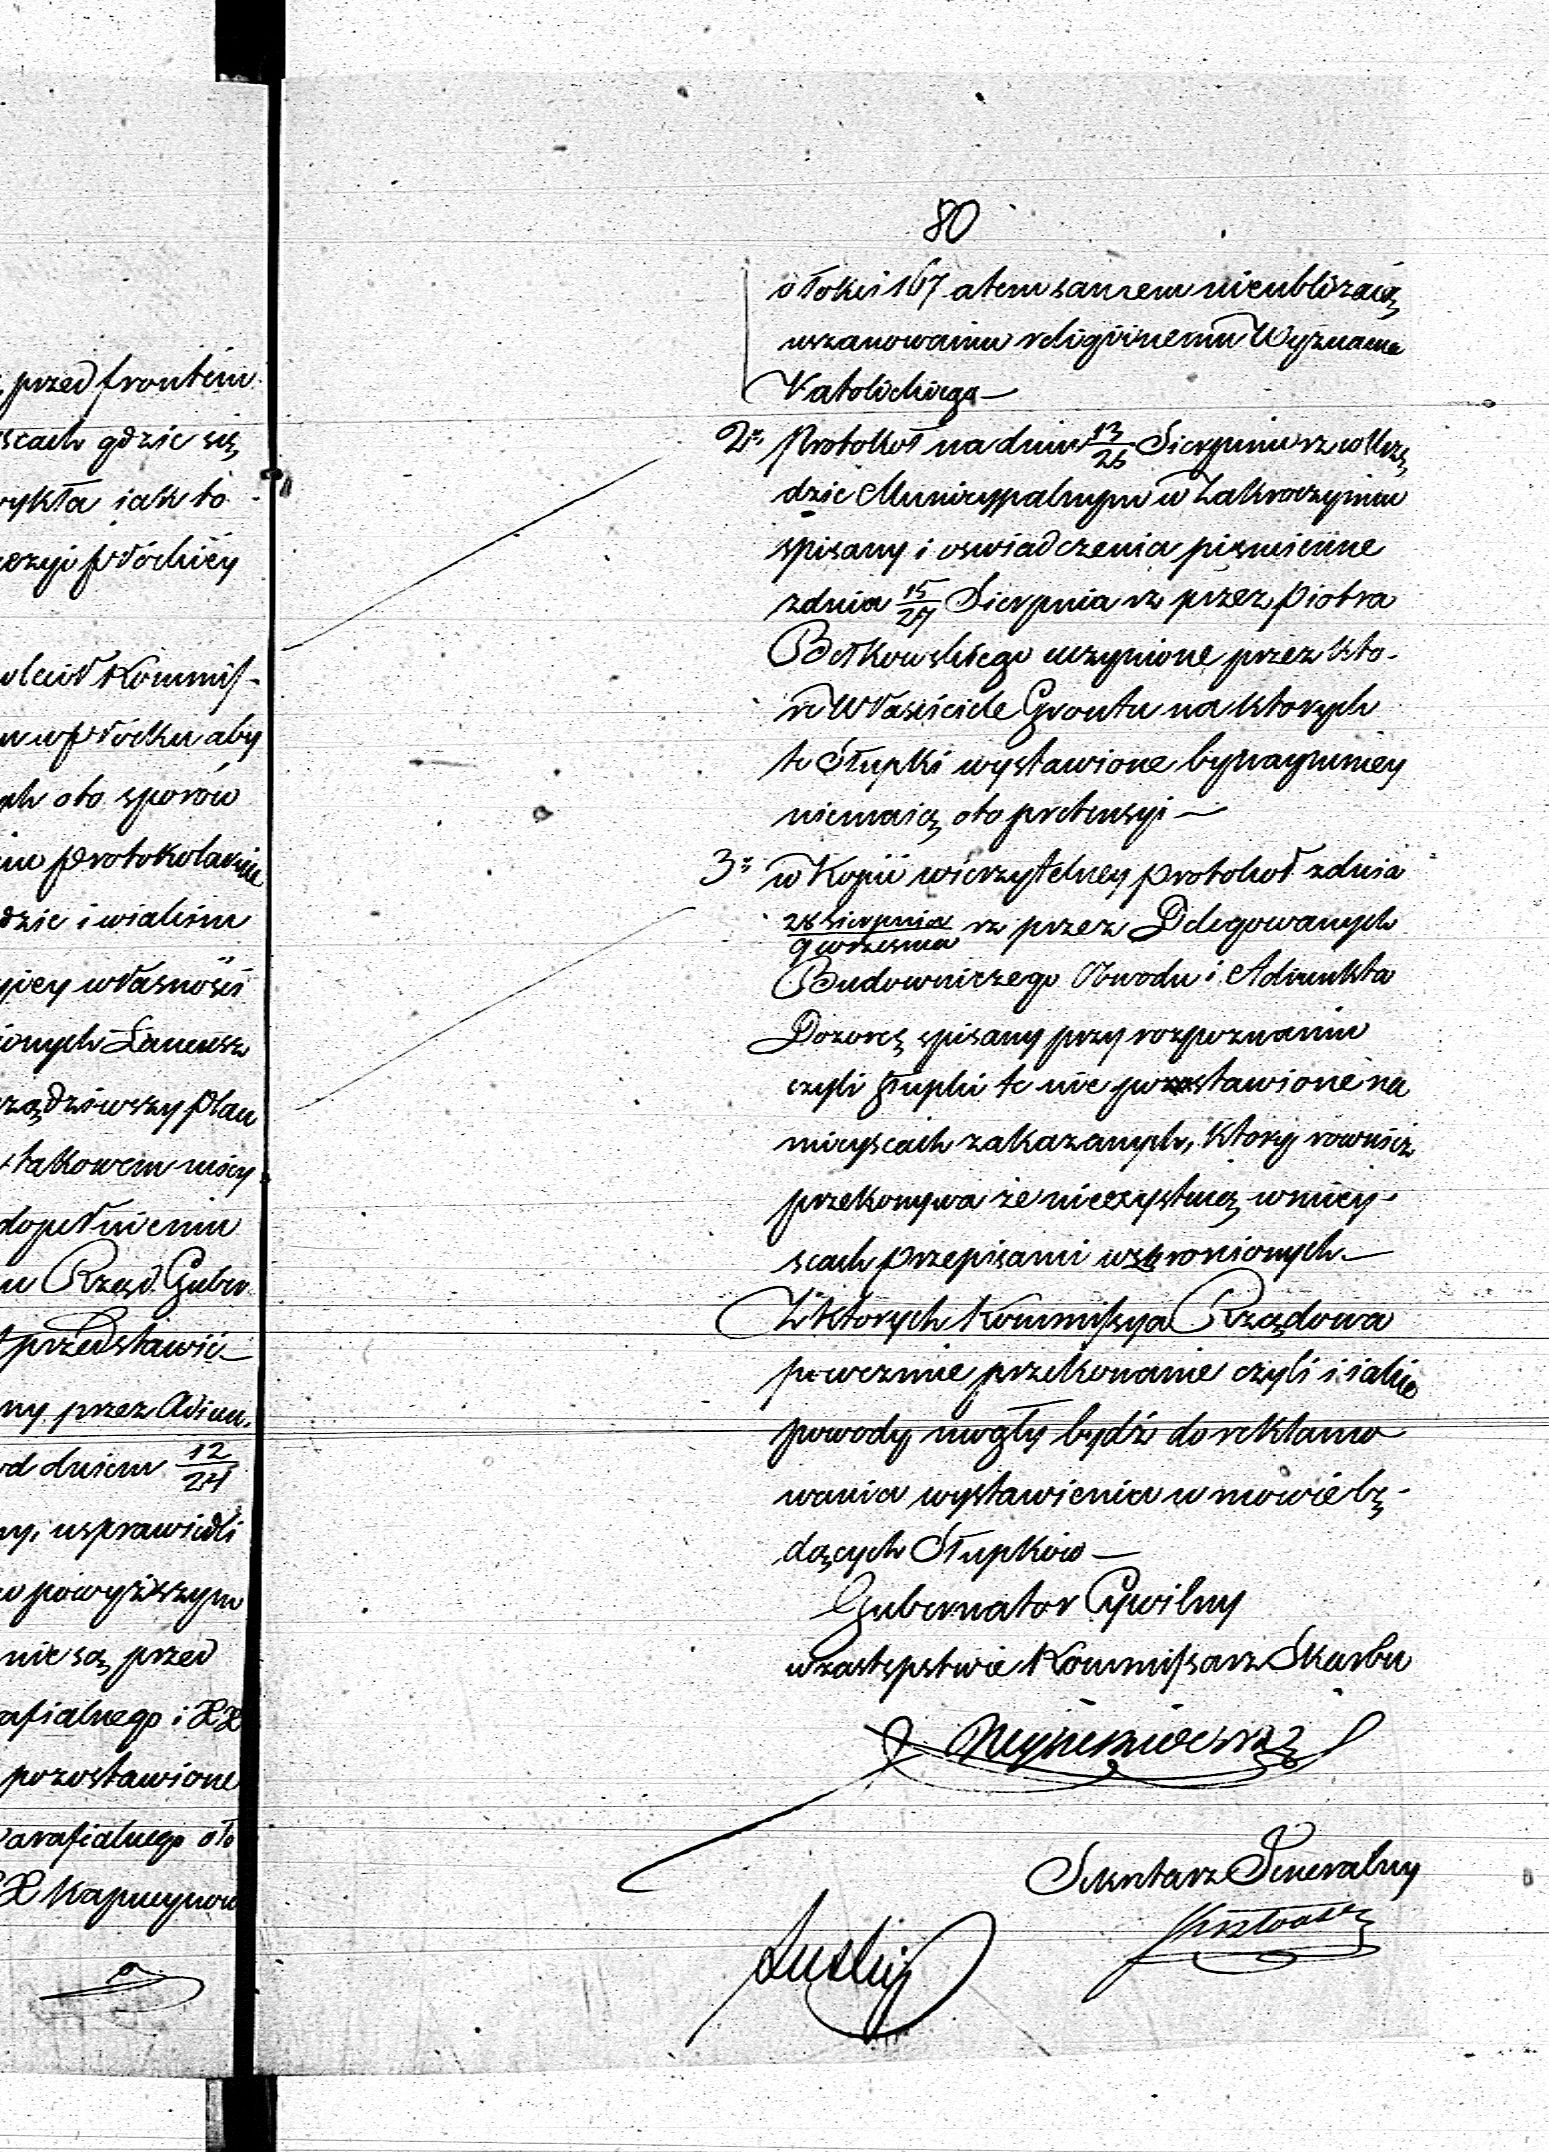 przed frontem
scach gdzie się
wykła iak to
cezyi płockiey
olcił Kommiſ-
w Płocku aby
ych oto sporów
protokolarnie
dzie i wiakim
cyiey własności
ionych Łancusz
rządziwszy plan
takowem miey
dopełnieniu
u Rząd Guber
przedstawić
ny przez Adiun.
d dniem 12/24
ny, usprawiedli
w powyższym
nie są przed
afialnego i XX
pozostawione
Parafialnego oło
XX Kapucynow
80
o łokci 167 atem samem nieubliżaią
uszanowaniu religiinemu Wyznania
Katolickiego —
2e, Protokoł na dniu 13/25 Sierpnia rz w Urzę
dzie Municypalnym w Zakroczymiu
spisany i oswiadczenia pismienne
zdnia 15/27 Sierpnia rz przez Piotra
Bełkowskiego uczynione przez kto-
re Właściciele Gruntu na ktorych
te Słupki wystawione bynaymniey
niemaią oto pretensyi —
3e w Kopii wierzytelney protokoł zdnia
28 Sierpnia/9 Wrzesnia rz przez Delegowanych
Budowniczego Obwodu i Adiunkta
Dozorcę spisany przy rozpoznaniu
czyli słupki te nie postawione na
mieyscach zakazanych, ktory rownież
przekonywa że nieexystuią wmiey-
scach przepisami wzbronionych —
Z ktorych Kommiſsya Rządowa
powezmie przekonanie czyli i iakie
powody mogły bydź do reklamo
wania wystawienia w mowie bę-
dących Słupków —
Gubernator Cywilny
w zastępstwie Kommiſsarz Skarbu
Sekretarz Jeneralny